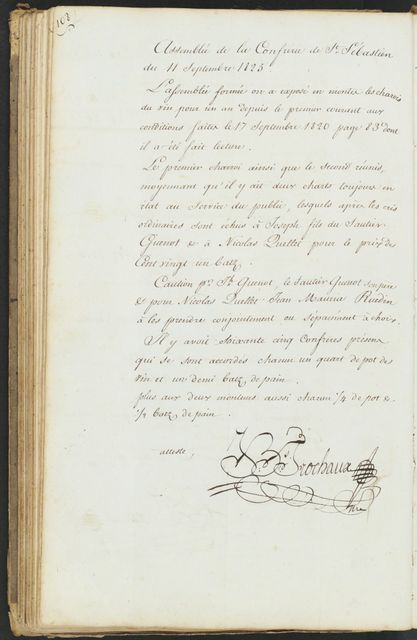 102
Assemblée de la Confrérie de St. Sébastien
du 11 Septembre 1825
L'assemblée formée on a exposé en montes les charrois
du vin pour un an depuis le premier courant aux
conditions faites le 17 Septembre 1820 page 83 dont
il a été fait lecture.
Le premier charroi ainsi que le second réunis,
moyennant qu'il y ait deux charts toujours en
état au Service du public, lesquels après les cris
ordinaires sont échus à Joseph fils du Sautier
Guenot & à Nicolas Quellet pour le prix de
Cent vingt un batz.
Caution pr. Jh. Guenot, le Sautier Guenot son père
& pour Nicolas Quellet Jean Maurice Ruedin
à les prendre conjointement ou séparément à choix.
Il y avoit Soixante cinq Confrères présens
qui se sont accordés chacun un quart de pot de
vin et un demi batz de pain.
plus aux deux monteurs aussi chacun 1/4 de pot &
1/2 batz de pain.
atteste,
Frochaux